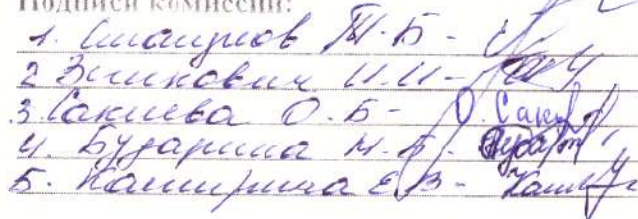 Подписи комиссии:
1. Смагулов Т.Б -
2 Зинкович И.И -
3. Сакиева О.Б - О. Сакі
4. Бударина Н.Б.
5. Каширина Е В -